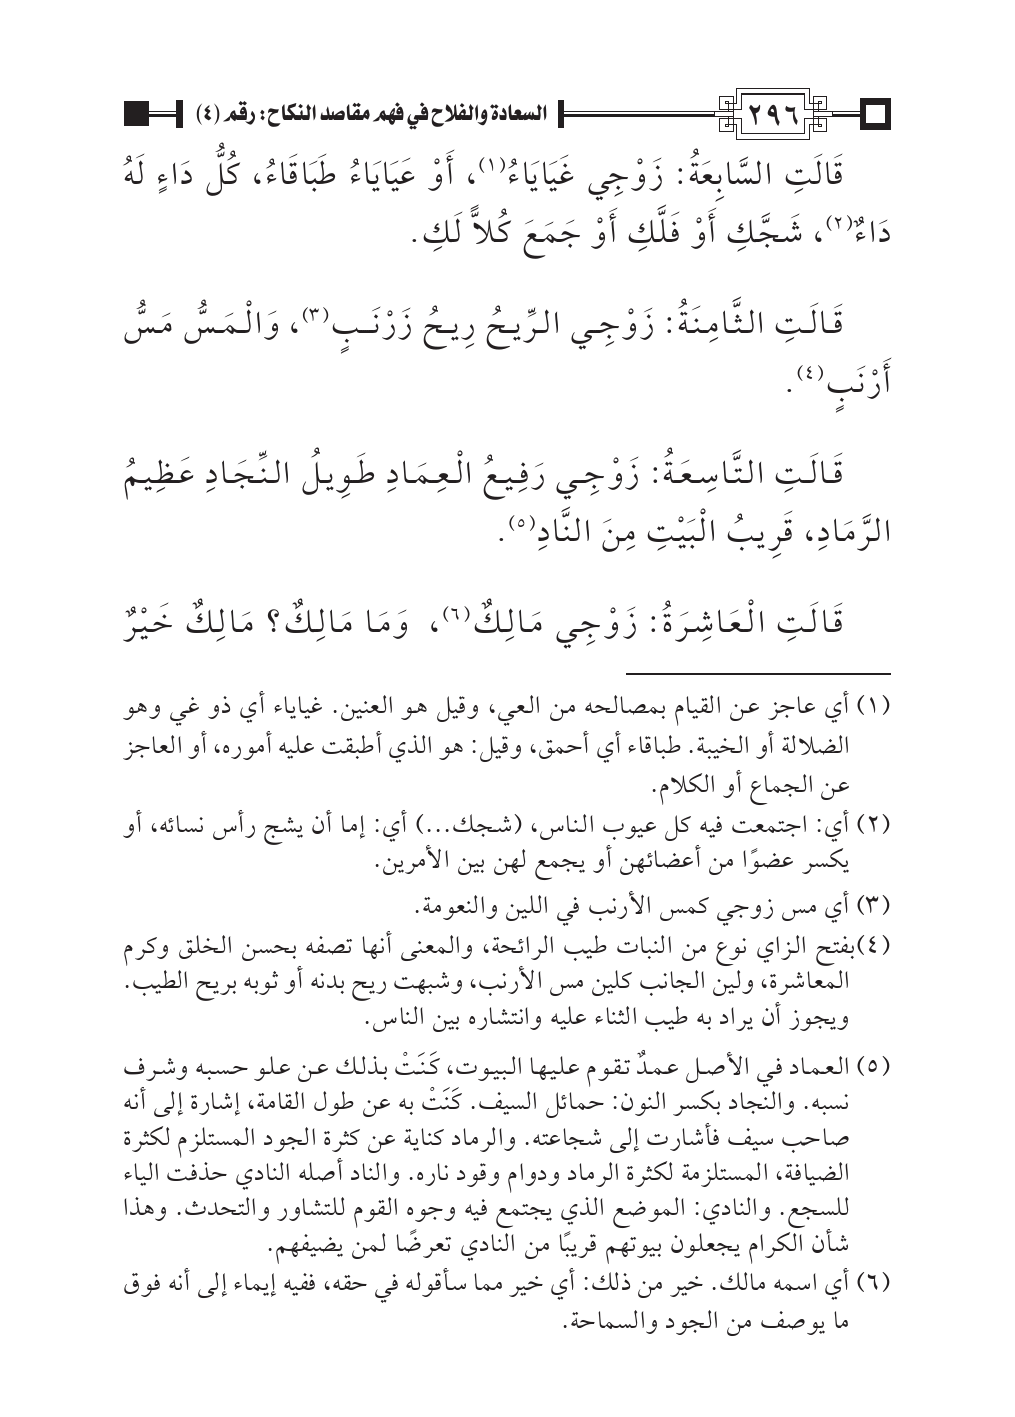 ٢٩٦ السعادة والفلاح في فهم مقاصد النكاح: رقم (٤)
قَالَتِ السَّابِعَةُ: زَوْجِي غَيَايَاءُ(١)، أَوْ عَيَايَاءُ طَبَاقَاءُ، كُلُّ دَاءٍ لَهُ
دَاءٌ(٢)، شَجَّكِ أَوْ فَلَّكِ أَوْ جَمَعَ كُلاًّ لَكِ.
قَالَتِ الثَّامِنَةُ: زَوْجِي الرِّيحُ رِيحُ زَرْنَبٍ(٣)، وَالْمَسُّ مَسُّ
أَرْنَبٍ(٤).
قَالَتِ التَّاسِعَةُ: زَوْجِي رَفِيعُ الْعِمَادِ طَوِيلُ النِّجَادِ عَظِيمُ
الرَّمَادِ، قَرِيبُ الْبَيْتِ مِنَ النَّادِ(٥).
قَالَتِ الْعَاشِرَةُ: زَوْجِي مَالِكٌ(٦)، وَمَا مَالِكٌ؟ مَالِكٌ خَيْرٌ
(١) أي عاجز عن القيام بمصالحه من العي، وقيل هو العنين. غياياء أي ذو غي وهو
الضلالة أو الخيبة. طباقاء أي أحمق، وقيل: هو الذي أطبقت عليه أموره، أو العاجز
عن الجماع أو الكلام.
(٢) أي: اجتمعت فيه كل عيوب الناس، (شجك...) أي: إما أن يشج رأس نسائه، أو
يكسر عضوًا من أعضائهن أو يجمع لهن بين الأمرين.
(٣) أي مس زوجي كمس الأرنب في اللين والنعومة.
(٤)بفتح الزاي نوع من النبات طيب الرائحة، والمعنى أنها تصفه بحسن الخلق وكرم
المعاشرة، ولين الجانب كلين مس الأرنب، وشبهت ريح بدنه أو ثوبه بريح الطيب.
ويجوز أن يراد به طيب الثناء عليه وانتشاره بين الناس.
(٥) العماد في الأصل عمدٌ تقوم عليها البيوت، كَنَتْ بذلك عن علو حسبه وشرف
نسبه. والنجاد بكسر النون: حمائل السيف. كَنَتْ به عن طول القامة، إشارة إلى أنه
صاحب سيف فأشارت إلى شجاعته. والرماد كناية عن كثرة الجود المستلزم لكثرة
الضيافة، المستلزمة لكثرة الرماد ودوام وقود ناره. والناد أصله النادي حذفت الياء
للسجع. والنادي: الموضع الذي يجتمع فيه وجوه القوم للتشاور والتحدث. وهذا
شأن الكرام يجعلون بيوتهم قريبًا من النادي تعرضًا لمن يضيفهم.
(٦) أي اسمه مالك. خير من ذلك: أي خير مما سأقوله في حقه، ففيه إيماء إلى أنه فوق
ما يوصف من الجود والسماحة.